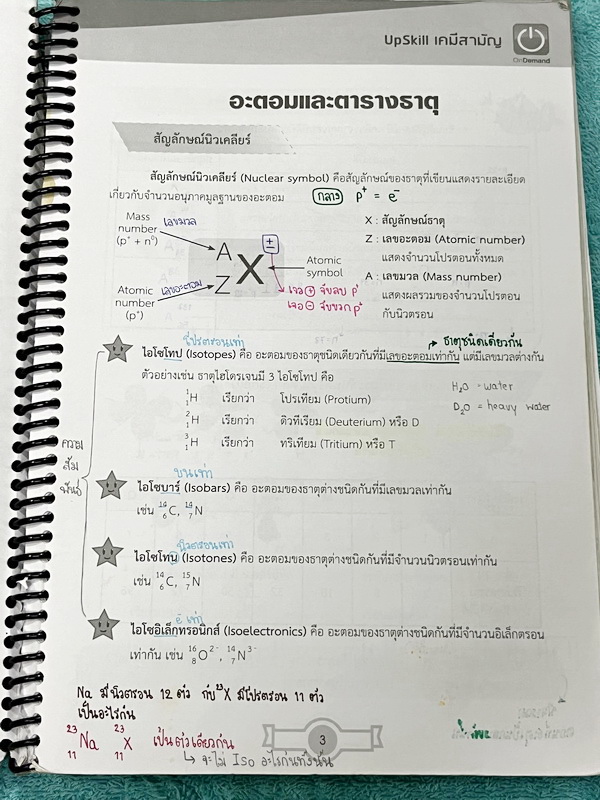 UpSkill เคมีสามัญ
OnDemand
อะตอมและตารางธาตุ
สัญลักษณ์นิวเคลียร์
สัญลักษณ์นิวเคลียร์ (Nuclear symbol) คือสัญลักษณ์ของธาตุที่เขียนแสดงรายละเอียด
เกี่ยวกับจำนวนอนุภาคมูลฐานของอะตอม กลาง p⁺ = e⁻
Mass number (p⁺ + n⁰)
เลขมวล
A
Z
X
±
Atomic symbol
Atomic number (p⁺)
เลขอะตอม
เจอ ⊕ จับลบ p⁺
เจอ ⊖ จับบวก p⁺
X : สัญลักษณ์ธาตุ
Z : เลขอะตอม (Atomic number)
แสดงจำนวนโปรตอนทั้งหมด
A : เลขมวล (Mass number)
แสดงผลรวมของจำนวนโปรตอน
กับนิวตรอน
โปรตอนเท่า
ธาตุชนิดเดียวกัน
ไอโซโทป (Isotopes) คือ อะตอมของธาตุชนิดเดียวกันที่มีเลขอะตอมเท่ากัน แต่มีเลขมวลต่างกัน
ตัวอย่างเช่น ธาตุไฮโดรเจนมี 3 ไอโซโทป คือ
¹₁H เรียกว่า โปรเทียม (Protium)
²₁H เรียกว่า ดิวทีเรียม (Deuterium) หรือ D
³₁H เรียกว่า ทริเทียม (Tritium) หรือ T
H₂O = water
D₂O = heavy water
ความสัมพันธ์
บนเท่า
ไอโซบาร์ (Isobars) คือ อะตอมของธาตุต่างชนิดกันที่มีเลขมวลเท่ากัน
เช่น ¹⁴₆C, ¹⁴₇N
นิวตรอนเท่า
ไอโซโทน (Isotones) คือ อะตอมของธาตุต่างชนิดกันที่มีจำนวนนิวตรอนเท่ากัน
เช่น ¹⁴₆C, ¹⁵₇N
e⁻ เท่า
ไอโซอิเล็กทรอนิกส์ (Isoelectronics) คือ อะตอมของธาตุต่างชนิดกันที่มีจำนวนอิเล็กตรอน
เท่ากัน เช่น ¹⁶₈O²⁻, ¹⁴₇N³⁻
Na มีนิวตรอน 12 ตัว กับ ²³X มีโปรตรอน 11 ตัว
เป็นอะไรกัน
²³₁₁Na ²³₁₁X เป็นตัวเดียวกัน
จะไม่ Iso อะไรกันทั้งนั้น
3